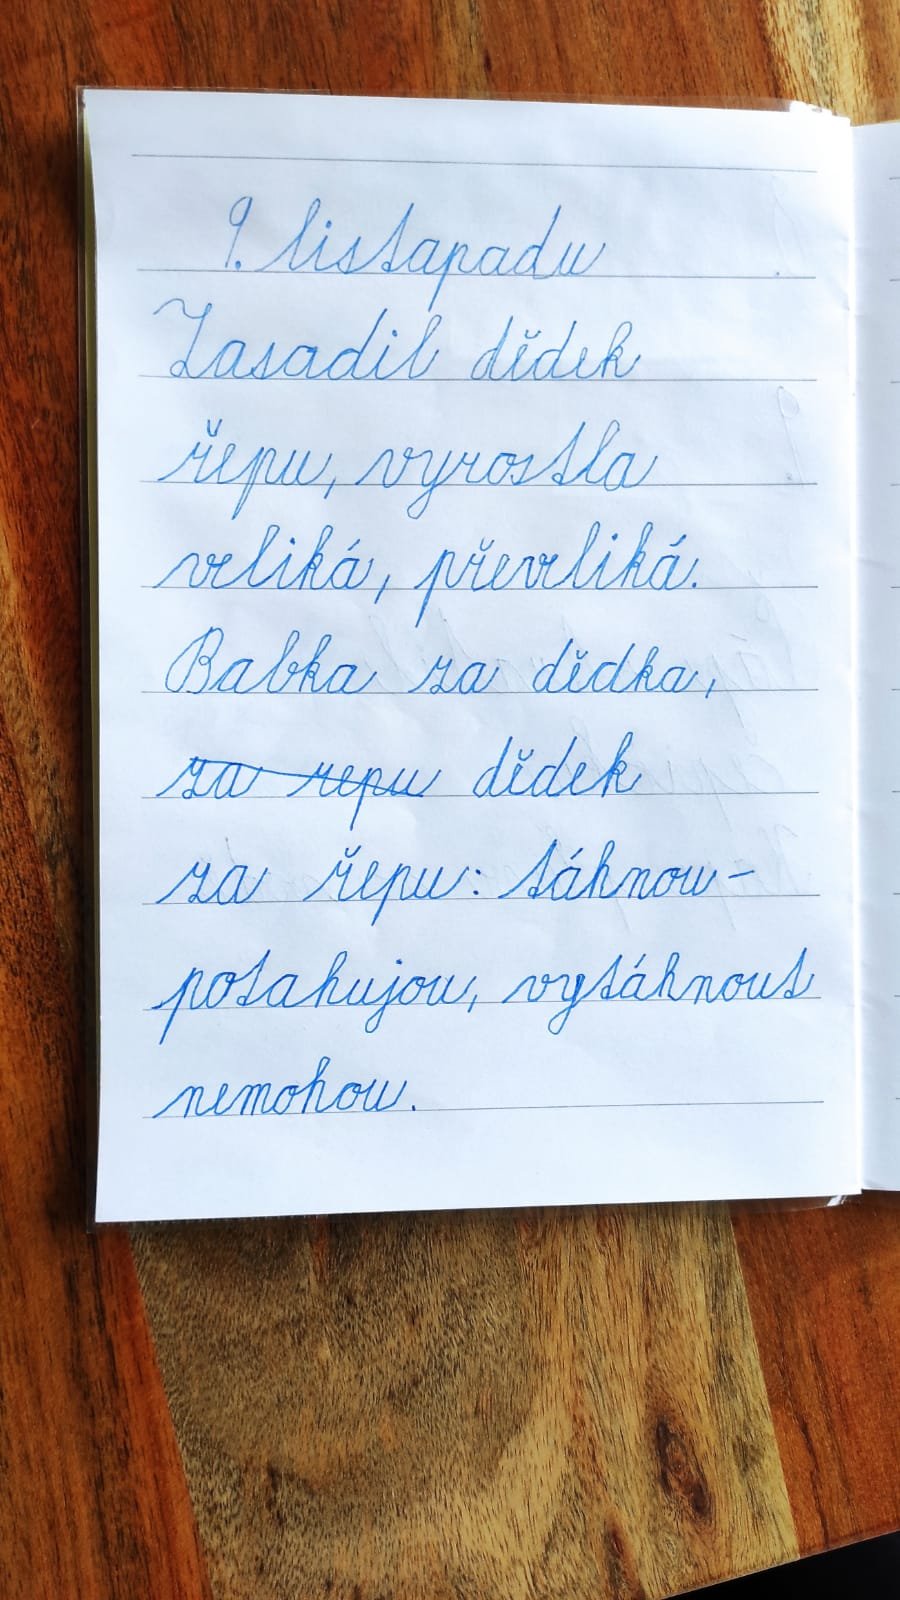 9. listopadu
Zasadil dědek
řepu, vyrostla
veliká, převeliká.
Babka za dědka,
za repu dědek
za řepu: táhnou -
potahujou, vytáhnout
nemohou.